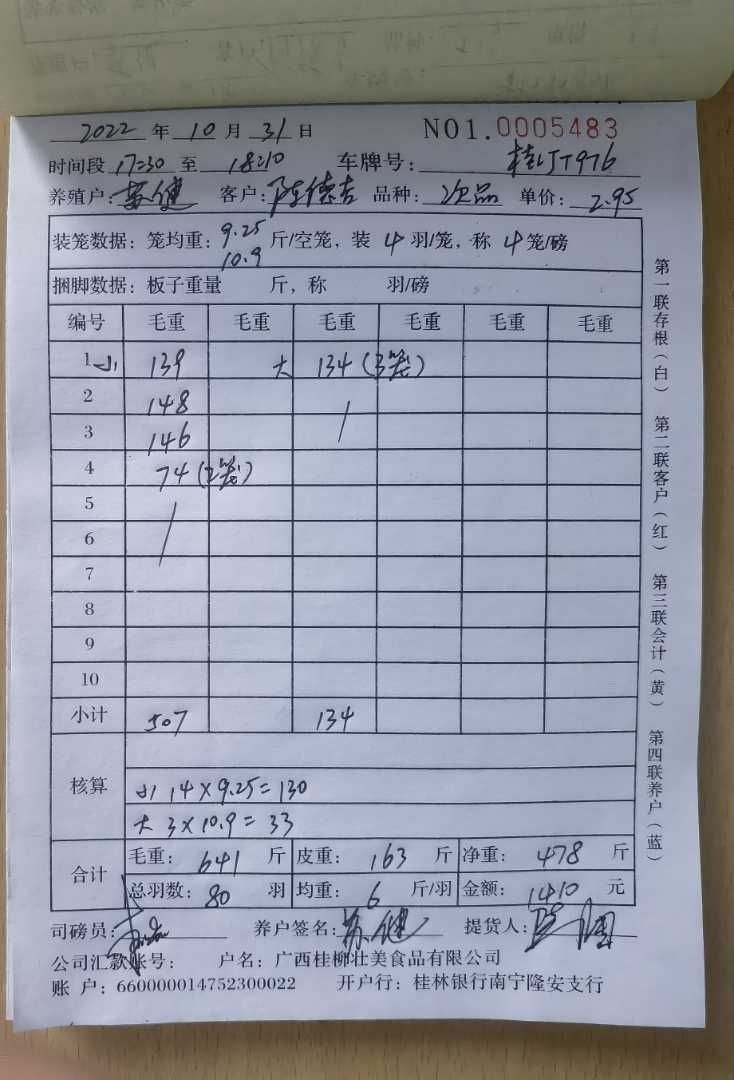 2022 年 10 月 31 日 NO1.0005483
时间段 17:30 至 18:10 车牌号：
养殖户：苏健 客户：陈德吉 品种：次品 单价：2.95
装笼数据：笼均重：9.25 10.9 斤/空笼，装 4 羽/笼，称 4 笼/磅
捆脚数据：板子重量 斤，称 羽/磅
编号 毛重 毛重 毛重 毛重 毛重 毛重
1 小 139 大 134（3笼）
2 148
3 146
4 74（2笼）
5
6
7
8
9
10
小计 507 134
核算
小 14×9.25=130
大 3×10.9=33
合计 毛重：641 斤 皮重：163 斤 净重：478 斤
总羽数：80 羽 均重：6 斤/羽 金额：1410 元
司磅员： 养户签名：苏健 提货人：
公司汇款账号： 户名：广西桂柳壮美食品有限公司
账 户：660000014752300022 开户行：桂林银行南宁隆安支行
第一联存根（白） 第二联客户（红） 第三联会计（黄） 第四联养户（蓝）